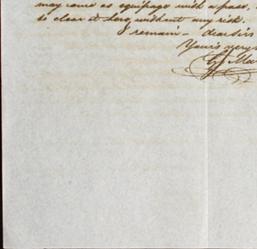 may come as equipage with a pass,
to clear it here without any risk.
I remain - dear Sir
Yours very